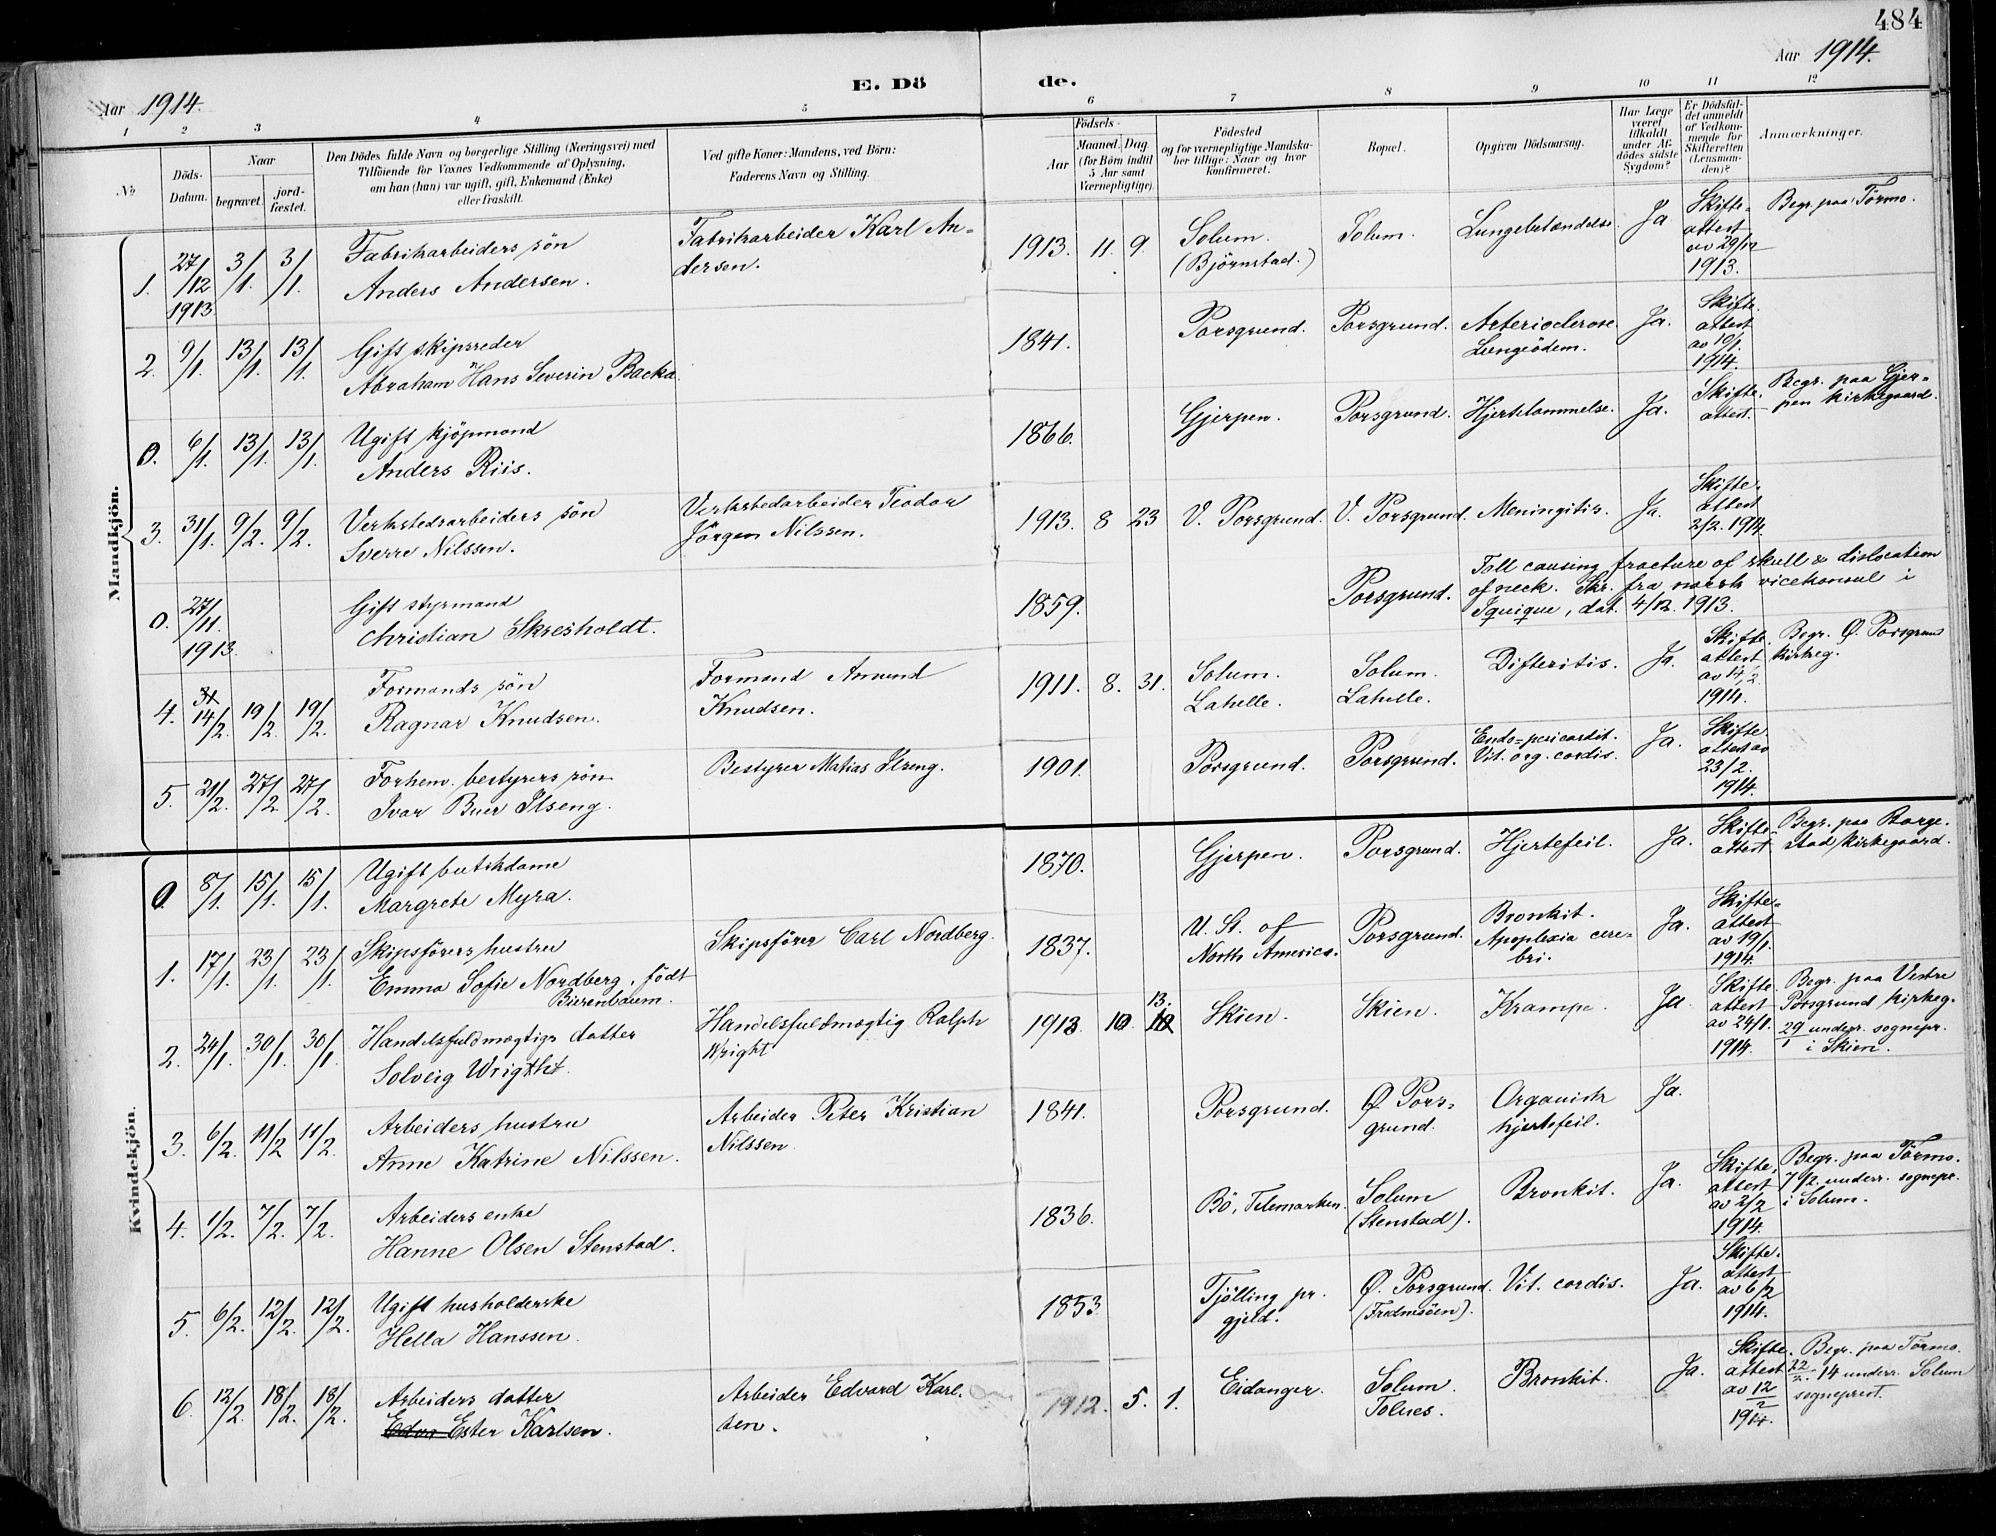 484
Aar 1914.
E. Dö de.
Aar 1914.
1 2 3 4 5 6 7 8 9 10 11 12
No
Döds-
Datum.
Naar
begravet.
jord-
fæstet.
Den Dödes fulde Navn og borgerlige Stilling (Næringsvei) med
Tilföiende for Voxnes Vedkommende af Oplysning,
om han (hun) var ugift, gift, Enkemand (Enke)
eller fraskilt.
Ved gifte Koner: Mandens, ved Börn:
Faderens Navn og Stilling.
Födsels-
Aar
Maaned. Dag.
(for Börn indtil
5 Aar samt
Værnepligtige).
Födested
og for værnepligtige Mandska-
ber tillige: Naar og hvor
konfirmeret.
Bopæl.
Opgiven Dödsaarsag.
Har Læge
været
tilkaldt
under Af-
dödes sidste
Sygdom?
Er Dödsfal-
det anmeldt
af Vedkom-
mende for
Skifteretten
(Lensman-
den)?
Anmærkninger.
Mandkjön.
1. 27/12 1913 3/1 3/1
Fabrikarbeiders sön
Anders Andersen.
Fabrikarbeider Karl An-
dersen.
1913. 11. 9.
Solum.
(Björnstad.)
Solum.
Lungebetændelse
Ja
Skifte-
attest
av 29/12
1913.
Begr. paa Törmo.
2. 9/1. 13/1. 13/1.
Gift skipsreder
Abraham Hans Severin Backa.
1841.
Porsgrund.
Porsgrund.
Arterioclerose.
Lungeödem.
Ja.
Skifte
attest
av 10/1.
1914.
0. 6/1. 13/1. 13/1.
Ugift kjöpmand
Anders Riis.
1866.
Gjerpen.
Porsgrund.
Hjertelammelse.
Ja.
Skifte.
attest.
Begr. paa Gjer-
pen kirkegaard.
3. 31/1. 9/2. 9/2.
Verkstedsarbeiders sön
Sverre Nilssen.
Verkstedarbeider Teodor
Jörgen Nilssen.
1913. 8 23
V. Porsgrund.
V. Porsgrund.
Meningitis.
Ja.
Skifte.
attest
2/2. 1914
0. 27/11. 1913.
Gift styrmand
Christian Skresholdt.
1859.
Porsgrund.
Fall causing fracture of skull & dislocation
of neck. Skr. fra norsk vicekonsul i
Iquique, dat. 4/12. 1913.
4. 14/2. 19/2. 19/2.
Formands sön
Ragnar Knudsen.
Formand Amund
Knudsen.
1911. 8. 31.
Solum.
Lahelle.
Solum.
Lahelle.
Difteritis.
Ja.
Skifte.
attest
av 14/2
1914.
Begr. Ø. Porsgrund
kirkeg.
5. 21/2. 27/2 27/2.
Forhenv. bestyrers sön
Ivar Buer Ilseng.
Bestyrer Matias Ilseng.
1901.
Porsgrund.
Porsgrund.
Endo-pericardit.
Vit. org. cordis.
Ja.
Skifte
attest av
23/2.
1914.
Kvindekjön.
0. 8/1. 15/1. 15/1.
Ugift butikdame
Margrete Myra.
1870.
Gjerpen.
Porsgrund.
Hjertefeil.
Ja.
Skifte-
attest.
Begr. paa Borge-
stad kirkegaard.
1. 17/1. 23/1. 23/1.
Skipsförers hustru
Emma Sofie Nordberg, födt
Bierenbaum.
Skipsförer Carl Nordberg.
1837.
U. St. of
North America.
Porsgrund.
Bronkit.
Apoplexia cere-
bri.
Ja.
Skifte-
attest
av 19/1.
1914.
2. 24/1. 30/1. 30/1.
Handelsfuldmægtigs datter
Solveig Wrigtht.
Handelsfuldmægtig Ralph
Wright
1913 10. 13.
Skien.
Skien.
Krampe.
Ja.
Skifte.
attest
av 24/1.
1914.
Begr. paa Vestre
Porsgrund kirkeg.
29/1 undegr. sognepr.
i Skien.
3. 6/2. 11/2 11/2.
Arbeiders hustru
Anne Katrine Nilssen.
Arbeider Peter Kristian
Nilssen.
1841.
Porsgrund.
Ø Pors-
grund.
Organisk
hjertefeil.
Ja.
4. 1/2. 7/2. 7/2.
Arbeiders enke
Hanne Olsen Stenstad.
1836.
Bö, Telemarken.
Solum
(Stenstad).
Bronkit.
Ja.
Skifte.
attest
av 2/2
1914.
Begr. paa Törmo.
7/2. underr. sognepr.
i Solum.
5. 6/2. 12/2. 12/2.
Ugift husholderske
Hella Hanssen.
1853.
Tjölling pr.
gjeld.
Ø. Porsgrund.
(Frednesöen).
Vit. cordis.
Ja.
Skifte.
attest
av 6/2
1914.
6. 12/2. 18/2. 18/2.
Arbeiders datter
Edva Ester Karlsen.
Arbeider Edvard Karl-
sen.
1912. 5. 1.
Eidanger.
Solum.
Tolnes.
Bronkit.
Ja.
Skifte.
attest
av 12/2
1914.
Begr. paa Törmo.
22/2-14 underr. Solum
sogneprest.